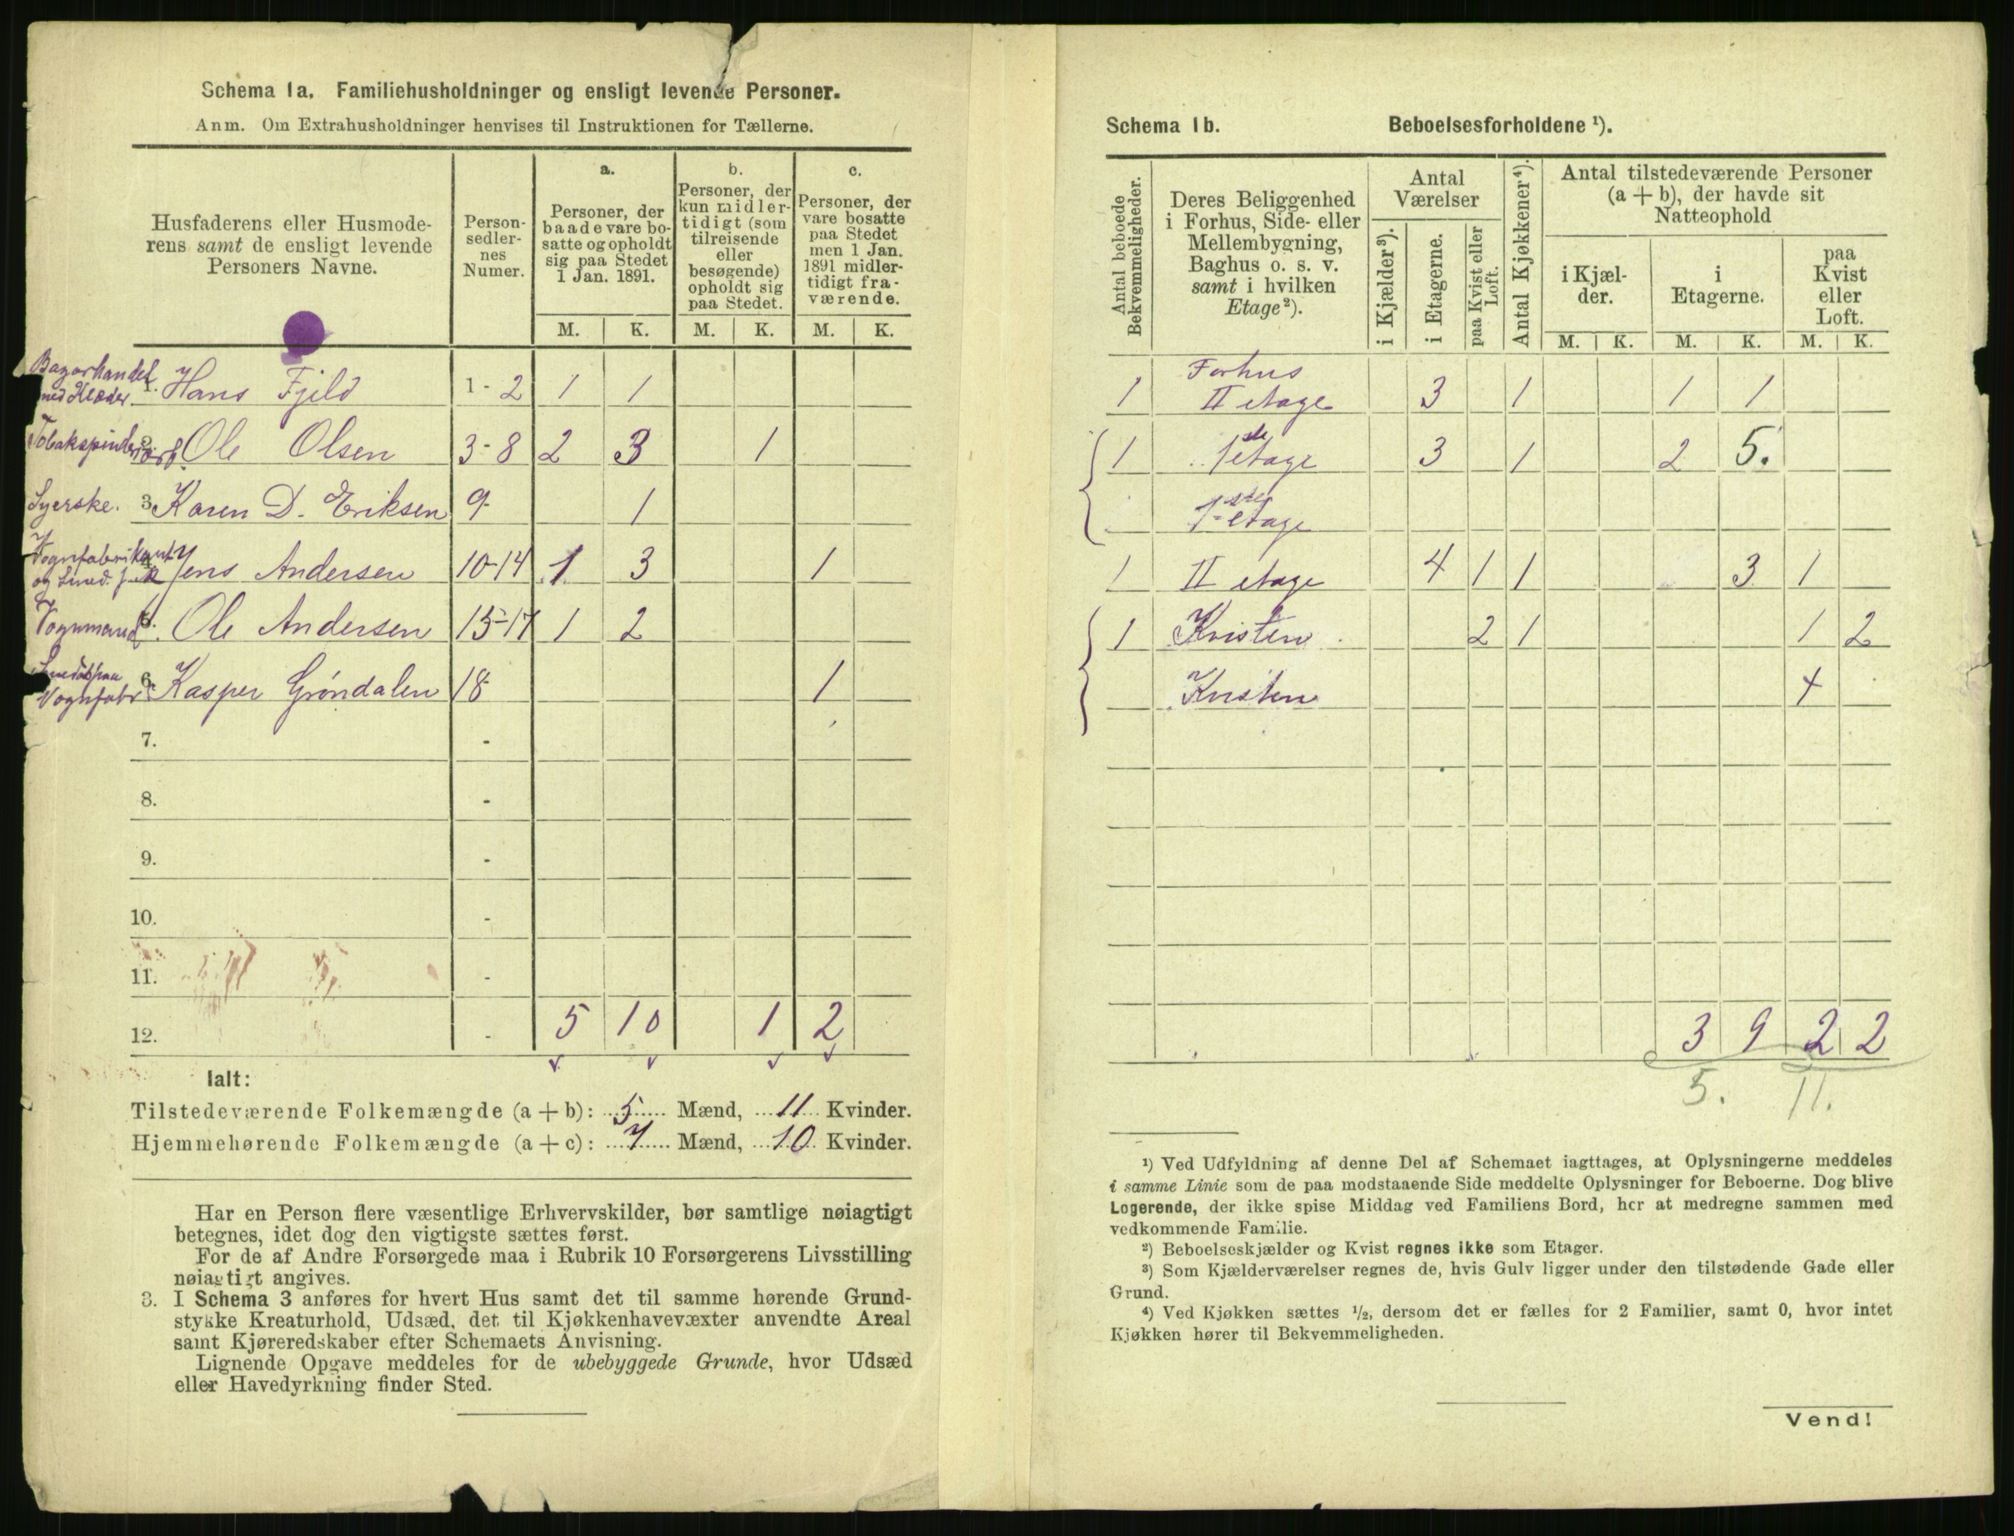 Schema 1a. Familiehusholdninger og ensligt levende Personer.
Anm. Om Extrahusholdninger henvises til Instruktionen for Tællerne.
Husfaderens eller Husmode-
rens samt de ensligt levende
Personers Navne.
Person-
sedler-
nes
Numer.
a.
Personer, der
baade vare bo-
satte og opholdt
sig paa Stedet
1 Jan. 1891.
b.
Personer, der
kun midler-
tidigt (som
tilreisende
eller
besøgende)
opholdt sig
paa Stedet.
c.
Personer, der
vare bosatte
paa Stedet
men 1 Jan.
1891 midler-
tidigt fra-
værende.
M. K. M. K. M. K.
Bazarhandel
med Klæder 1. Hans Fjeld 1 - 2 1 1
Tobakspinder 2. Ole Olsen 3 - 8 2 3 1
Syerske. 3. Karen D. Eriksen 9 - 1
Vognfabrikant
og Smed. 4. Jens Andersen 10-14 1 3 1
Vognmand 5. Ole Andersen 15-17 1 2
Vognfabr. 6. Kasper Grøndalen 18 1
7. -
8. -
9. -
10. -
11. -
12. - 5 10 1 2
Ialt:
Tilstedeværende Folkemængde (a + b): 5 Mænd, 11 Kvinder.
Hjemmehørende Folkemængde (a + c): 7 Mænd, 10 Kvinder.
Har en Person flere væsentlige Erhvervskilder, bør samtlige nøiagtigt
betegnes, idet dog den vigtigste sættes først.
For de af Andre Forsørgede maa i Rubrik 10 Forsørgerens Livsstilling
nøiagtigt angives.
3. I Schema 3 anføres for hvert Hus samt det til samme hørende Grund-
stykke Kreaturhold, Udsæd, det til Kjøkkenhavevæxter anvendte Areal
samt Kjøreredskaber efter Schemaets Anvisning.
Lignende Opgave meddeles for de ubebyggede Grunde, hvor Udsæd
eller Havedyrkning finder Sted.
Schema 1b. Beboelsesforholdene ¹).
Antal beboede
Bekvemmeligheder.
Deres Beliggenhed
i Forhus, Side- eller
Mellembygning,
Baghus o. s. v.
samt i hvilken
Etage²).
Antal
Værelser
i Kjælder³).
i Etagerne.
paa Kvist eller
Loft.
Antal Kjøkkener⁴).
Antal tilstedeværende Personer
(a + b), der havde sit
Natteophold
i Kjæl-
der.
i
Etagerne.
paa
Kvist
eller
Loft.
M. K. M. K. M. K.
Forhus
1 II etage 3 1 1 1
1 1ste etage 3 1 2 5.
1ste etage
1 II etage 4 1 1 3 1
1 Kvisten 2 1 1 2
Kvisten +
3 9 2 2
5. 11.
¹) Ved Udfyldning af denne Del af Schemaet iagttages, at Oplysningerne meddeles
i samme Linie som de paa modstaaende Side meddelte Oplysninger for Beboerne. Dog blive
Logerende, der ikke spise Middag ved Familiens Bord, her at medregne sammen med
vedkommende Familie.
²) Beboelseskjælder og Kvist regnes ikke som Etager.
³) Som Kjælderværelser regnes de, hvis Gulv ligger under den tilstødende Gade eller
Grund.
⁴) Ved Kjøkken sættes ½, dersom det er fælles for 2 Familier, samt 0, hvor intet
Kjøkken hører til Bekvemmeligheden.
Vend!